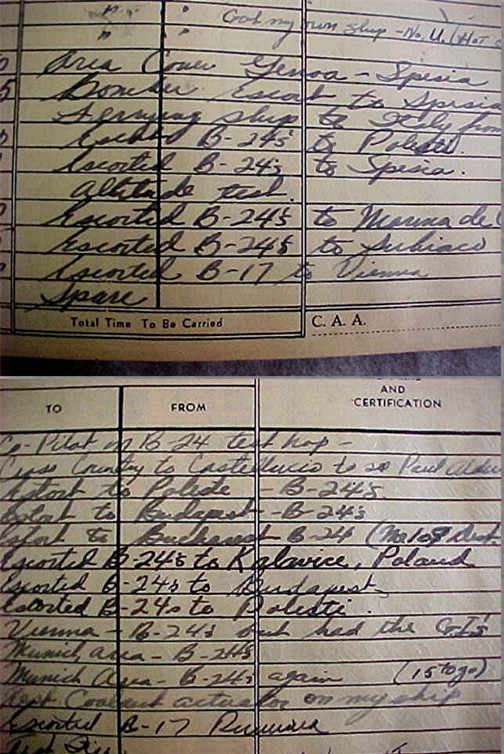 " " Got my own ship - No. U. (Hot
Area Cover Genoa - Spezia
Bomber Escort to Spezia
Ferrying ship to Italy from
Escorted B-24s to Polesti.
Escorted B-24s to Spezia.
Altitude test.
Escorted B-24s to Marina de
Escorted B-24s to Subiaco
Escorted B-17 to Vienna
Spare
Total Time To Be Carried
C. A. A.
AND
TO FROM CERTIFICATION
Co-Pilot in B-24 test hop -
Cross Country to Castelluccio to see Paul
Escort to Poleste - B-24s.
Escort to Budapest - B-24s
Escort to Bucharest B-24 (Me 109
Escorted B-24s to Katowice, Poland
Escorted B-24s to Budapest
Escorted B-24s to Polesti.
Vienna - B-24s but had the G.I.s
Munich area - B-24s
Munich Area - B-24s again (15 to go)
Test Coolant actuator on my ship
Escorted B-17